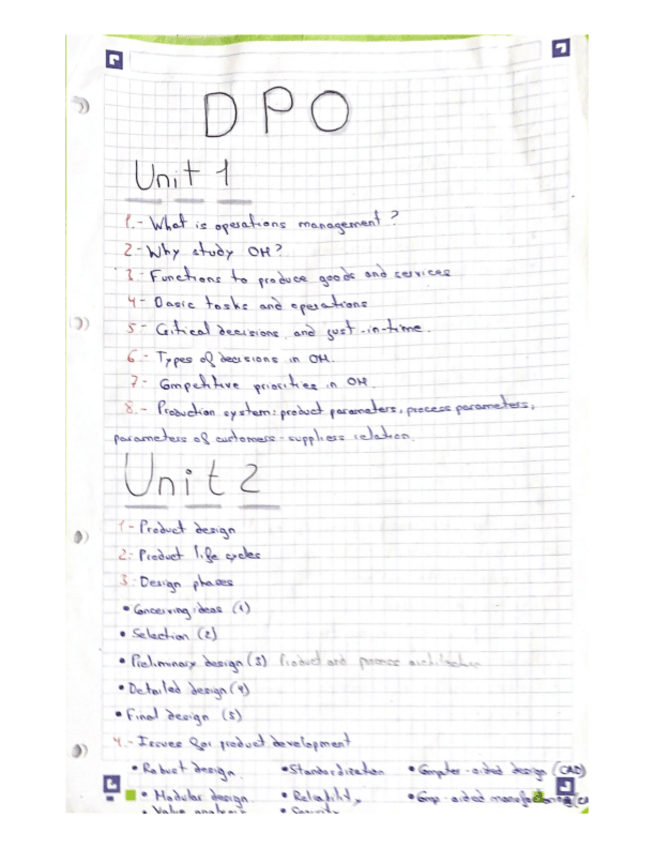 DPO
Unit 1
1.- What is operations management?
2- Why study OM?
3- Functions to produce goods and services
4- Basic tasks and operations
5- Critical decisions, and just-in-time.
6.- Types of decisions in OM.
7- Competitive priorities in OM.
8.- Production system: product parameters, process parameters,
parameters of customers-suppliers relation.
Unit 2
1- Product design
2- Product life cycles
3- Design phases
• Conceiving ideas (1)
• Selection (2)
• Preliminary design (3) Product and process architecture
• Detailed design (4)
• Final design (5)
4.- Issues for product development
• Robust design. • Standardization • Computer-aided design (CAD)
• Modular design. • Reliability • Comp-aided
• Value analysis • Security